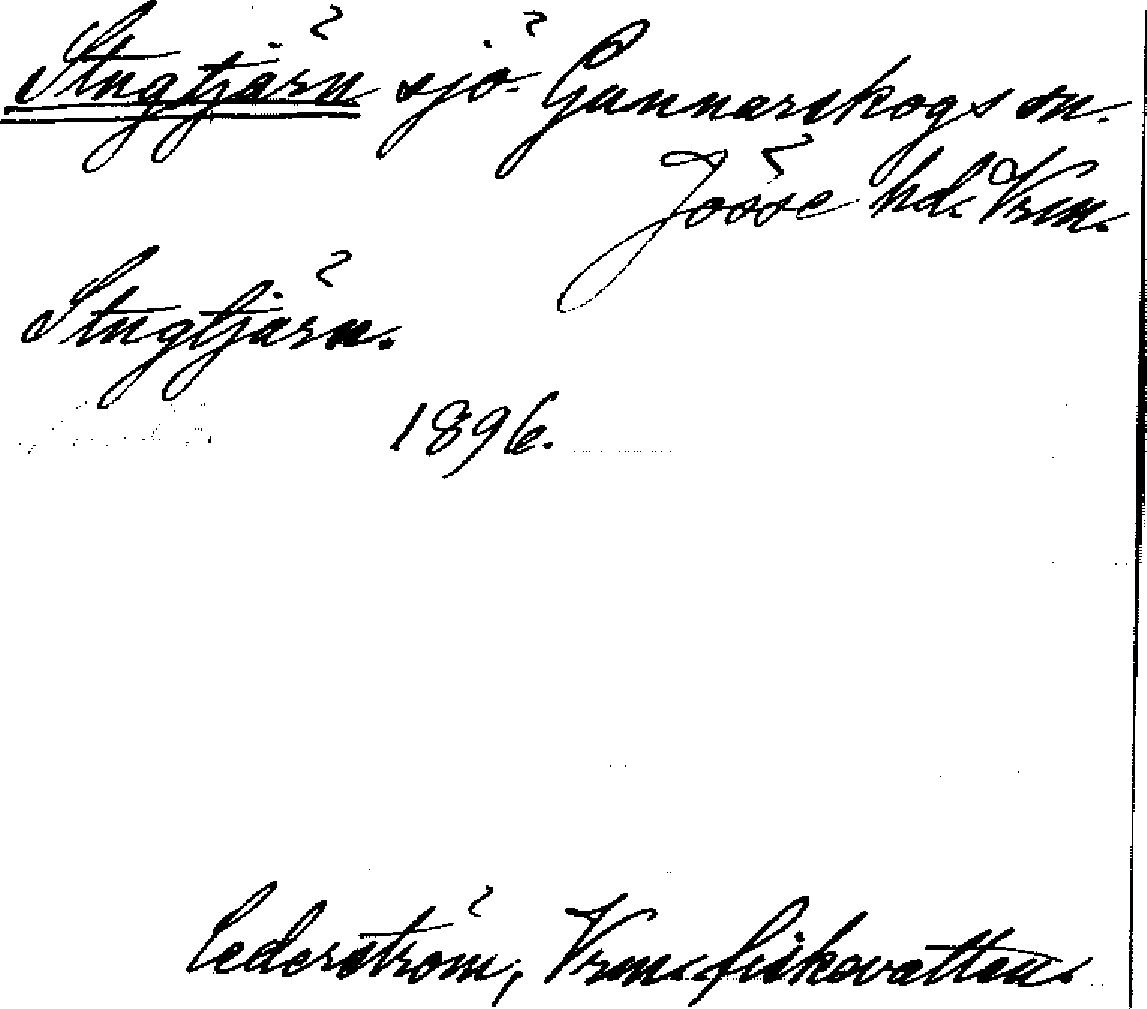 Stugtjärn sjö Gunnarskogs sn.
Jösse hd. Vrm.
Stugtjärn.
1896.
Cederström, Vrm. fiskevatten.